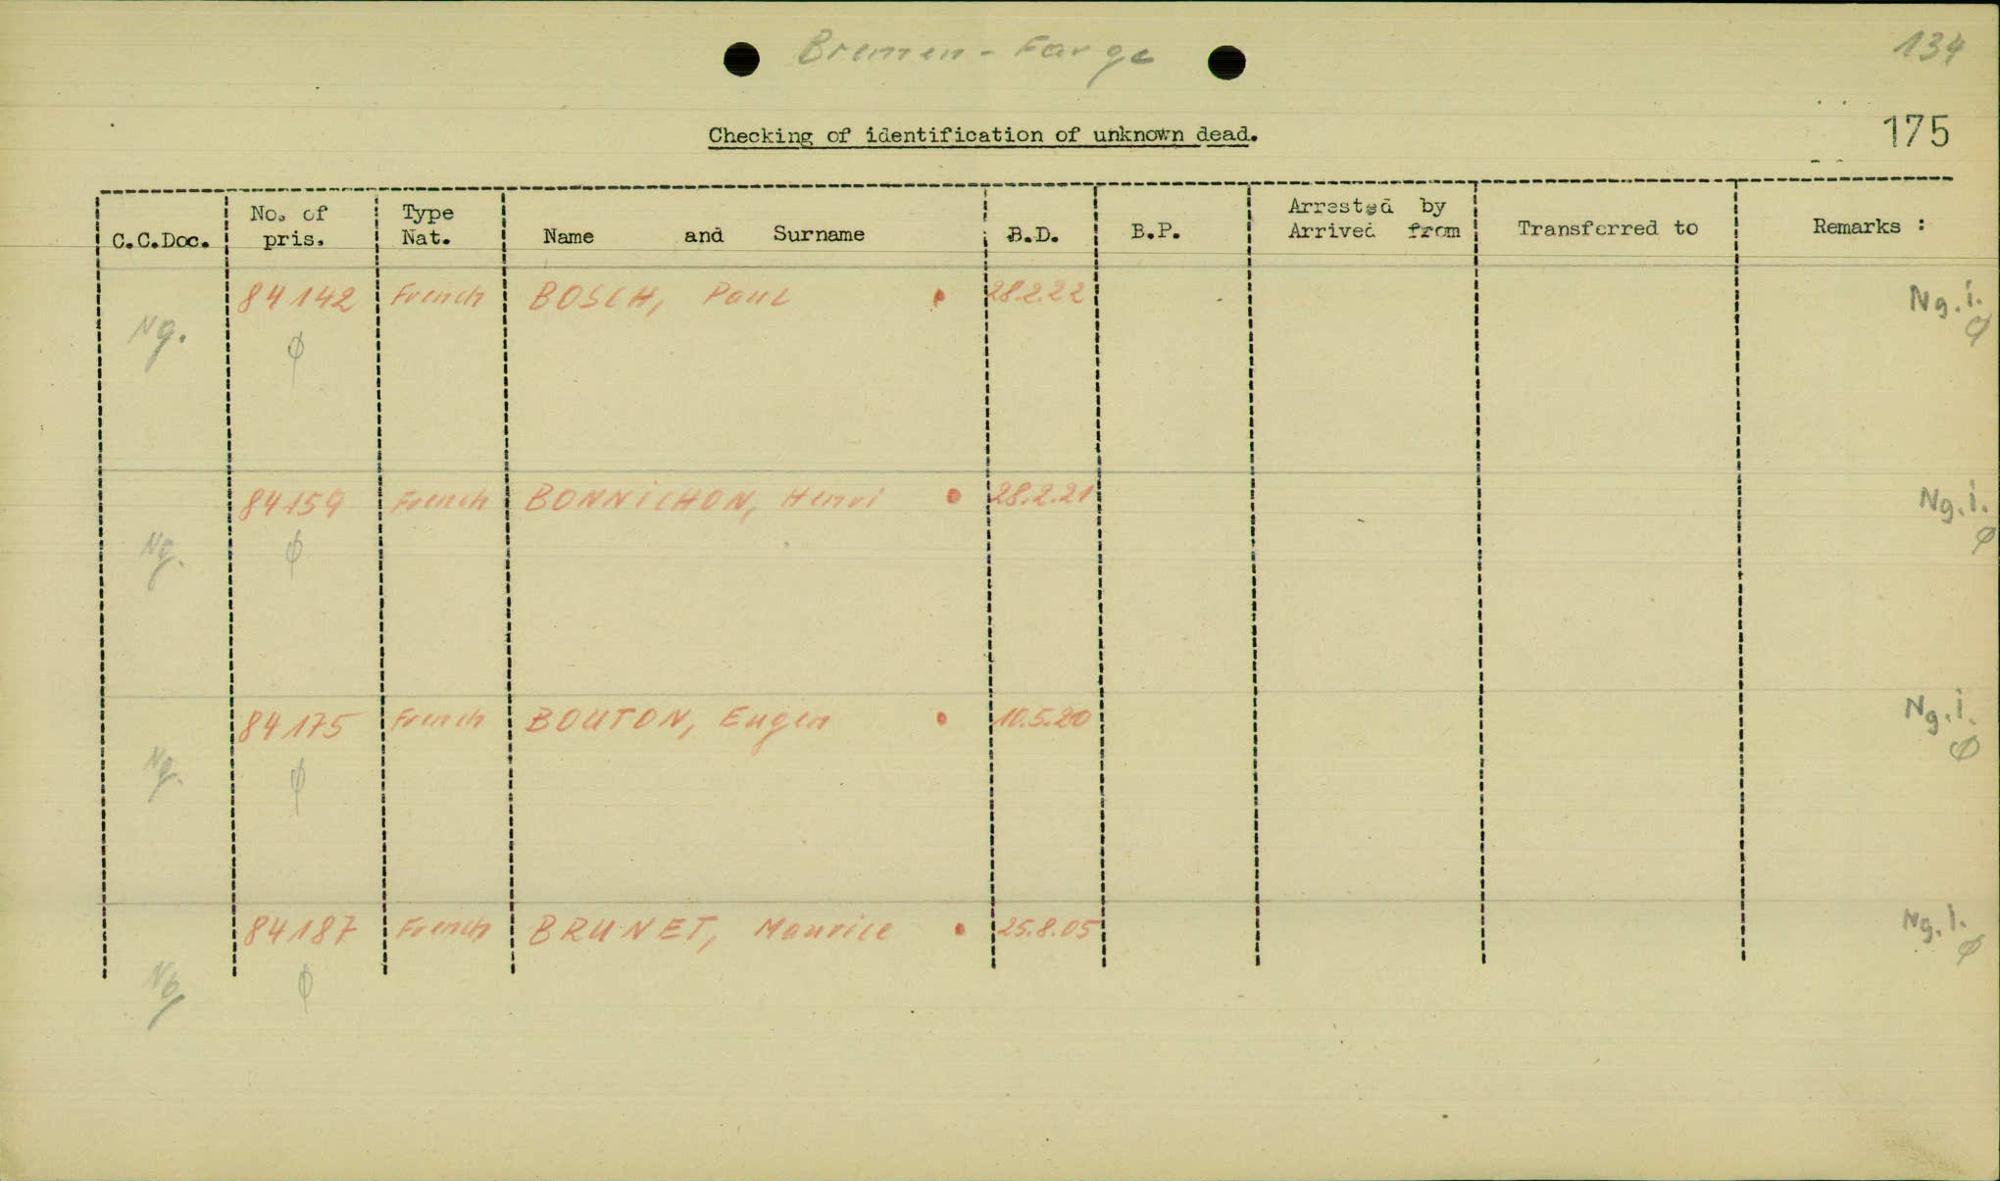 Bremen-Farge
134
Checking of identification of unknown dead.
175
C.C.Doc. No. of pris. Type Nat. Name and Surname B.D. B.P. Arrested by Arrived from Transferred to Remarks :
84142 French BOSCH, Paul 28.2.22 Ng. i.
Ng. ϕ ϕ
84159 French BONNICHON, Henri 28.2.21 Ng. i.
Ng. ϕ ϕ
84175 French BOUTON, Eugen 10.5.20 Ng. i.
Ng. ϕ ϕ
84187 French BRUNET, Maurice 25.8.05 Ng. i.
Ng ϕ ϕ